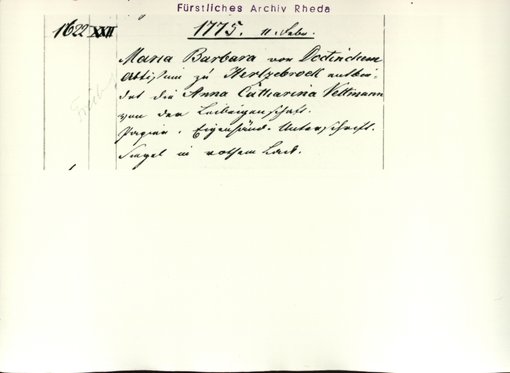 Fürstliches Archiv Rheda
1622 XXII 1775. 11. Febr.
Maria Barbara von
Äbtissin zu Hertzebrock entbin-
det die Anna Catharina Veltmann
von der Leibeigenschaft.
Papier. Eigenhänd. Unterschrift.
Siegel in rothem Lack.